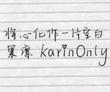 将心化作一片空白
果凍 karinOnly